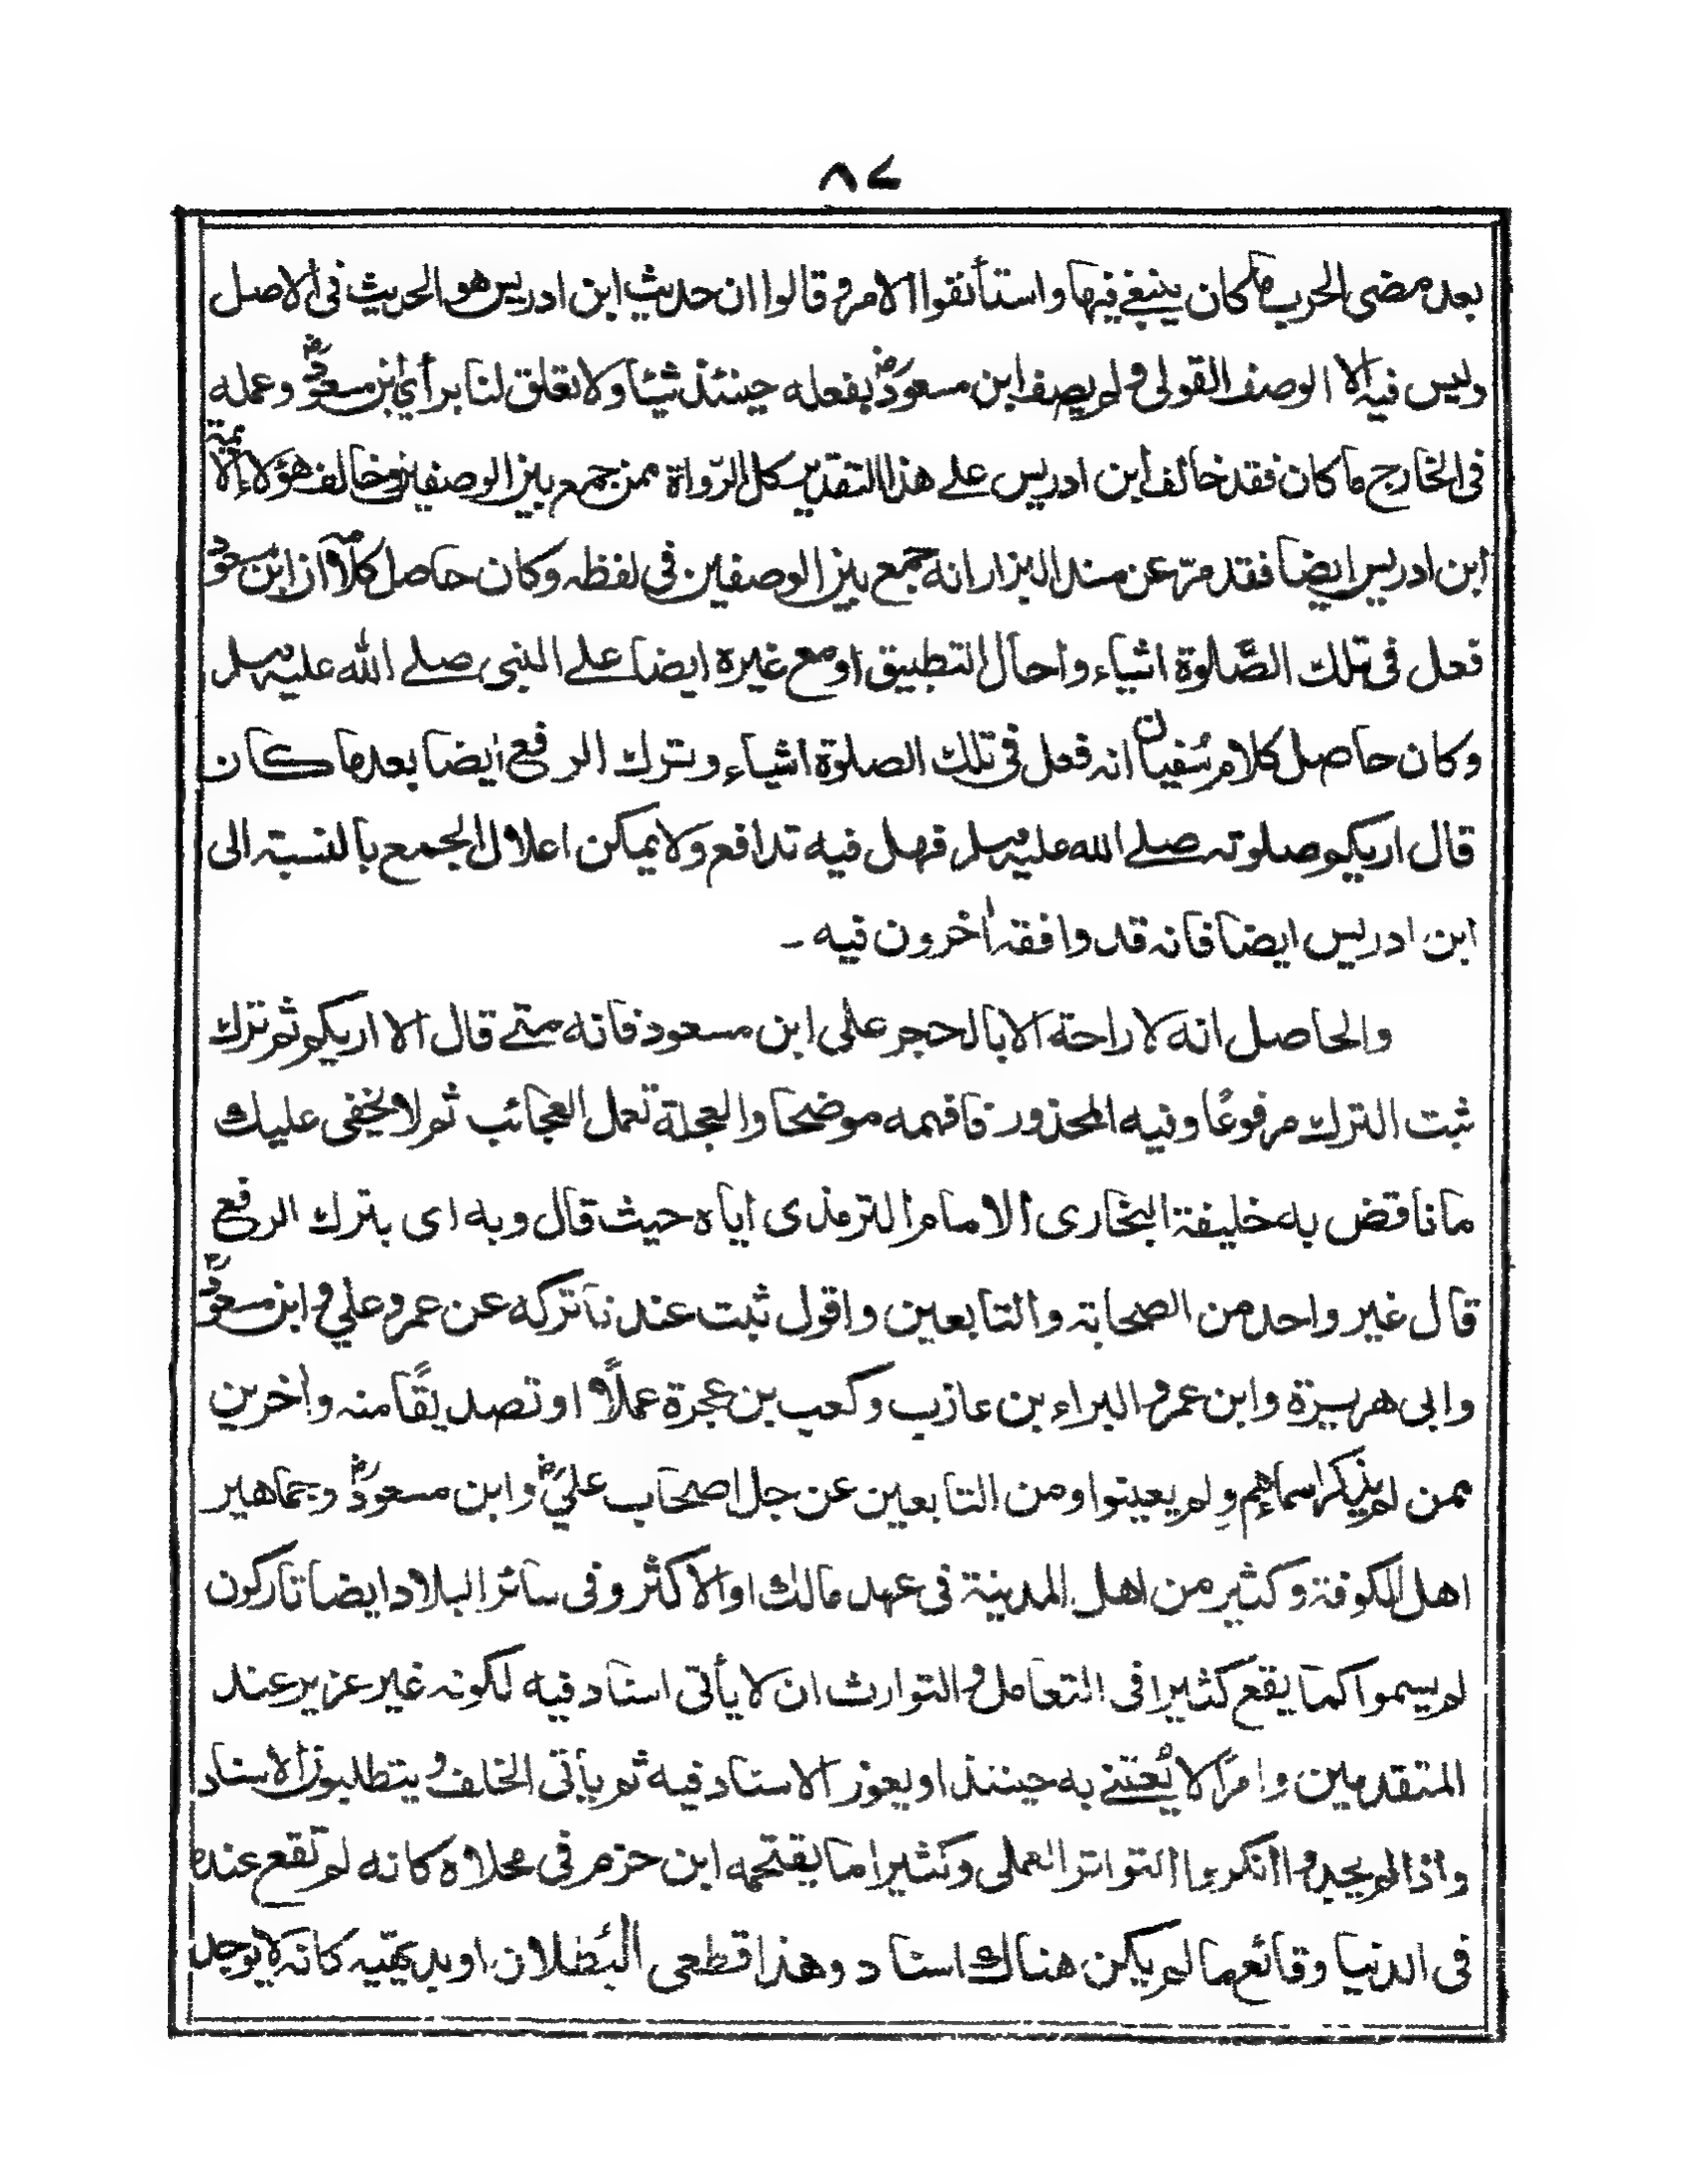 ٨٤
بعد مضى الحرب ما كان ينبغى فيها واستأنفوا الامر وقالوا ان حديث ابن ادريس هو الحديث فى الاصل
وليس فيه الا الوصف القولى ولم يصف ابن مسعودؓ بفعله حينئذ شيئا ولا تعلق لنا برأي ابن مسعودؓ وعمله
فى الخارج ما كان فقد خالف ابن ادريس على هذا التقدير كل الرّواة ممن جمع بين الوصفين وخالف هؤلاء الائمة
ابن ادريس ايضا فقد مرّ عن مسند البزار انه جمع بين الوصفين فى لفظه وكان حاصل كلامه ان ابن مسعود
فعل فى تلك الصّلوة اشياء واحال التطبيق او مع غيره ايضا على النبى صلى الله عليه وسلم
وكان حاصل كلام سُفيان انه فعل فى تلك الصلوة اشياء وترك الرفع ايضا بعد ما كان
قال اريكم صلوته صلى الله عليه وسلم فهل فيه تدافع ولا يمكن اعلال الجمع بالنسبة الى
ابن ادريس ايضا فانه قد وافقه اٰخرون فيه ـ
والحاصل انه لا راحة الا بالحجر على ابن مسعود فانه متى قال الا اريكم ثم ترك
ثبت الترك مرفوعًا وفيه المحذور فافهمه موضحا والعجلة تعمل العجائب ثم لا يخفى عليك
ما ناقض به خليفة البخارى الامام الترمذى اياه حيث قال وبه اى بترك الرفع
قال غير واحد من الصحابة والتابعين واقول ثبت عندنا تركه عن عمر وعلي وابن مسعودؓ
وابى هريرة وابن عمر والبراء بن عازب وكعب بن عجرة عملًا او تصديقًا منه واٰخرين
ممن لم يذكر اسماءهم ولم يعينوا ومن التابعين عن جل اصحاب عليؓ وابن مسعودؓ وجماهير
اهل الكوفة وكثير من اهل المدينة فى عهد مالك او الاكثر وفى سائر البلاد ايضا تاركون
لم يسموا كما يقع كثيرا فى التعامل والتوارث ان لا يأتى اسناد فيه لكونه غير عزيز عند
المتقدمين وامرًا لا يُعتنى به حينئذ او يعوز الاسناد فيه ثم يأتى الخلف ويتطلبون الاسناد
واذا لم يجدوا انكروا التواتر العملى وكثيرا ما يقتحمه ابن حزم فى محلاه كانه لم تقع عنده
فى الدنيا وقائع ما لم يكن هناك اسناد وهذا قطعى البُطلان او بديهيه كانه لا يوجد